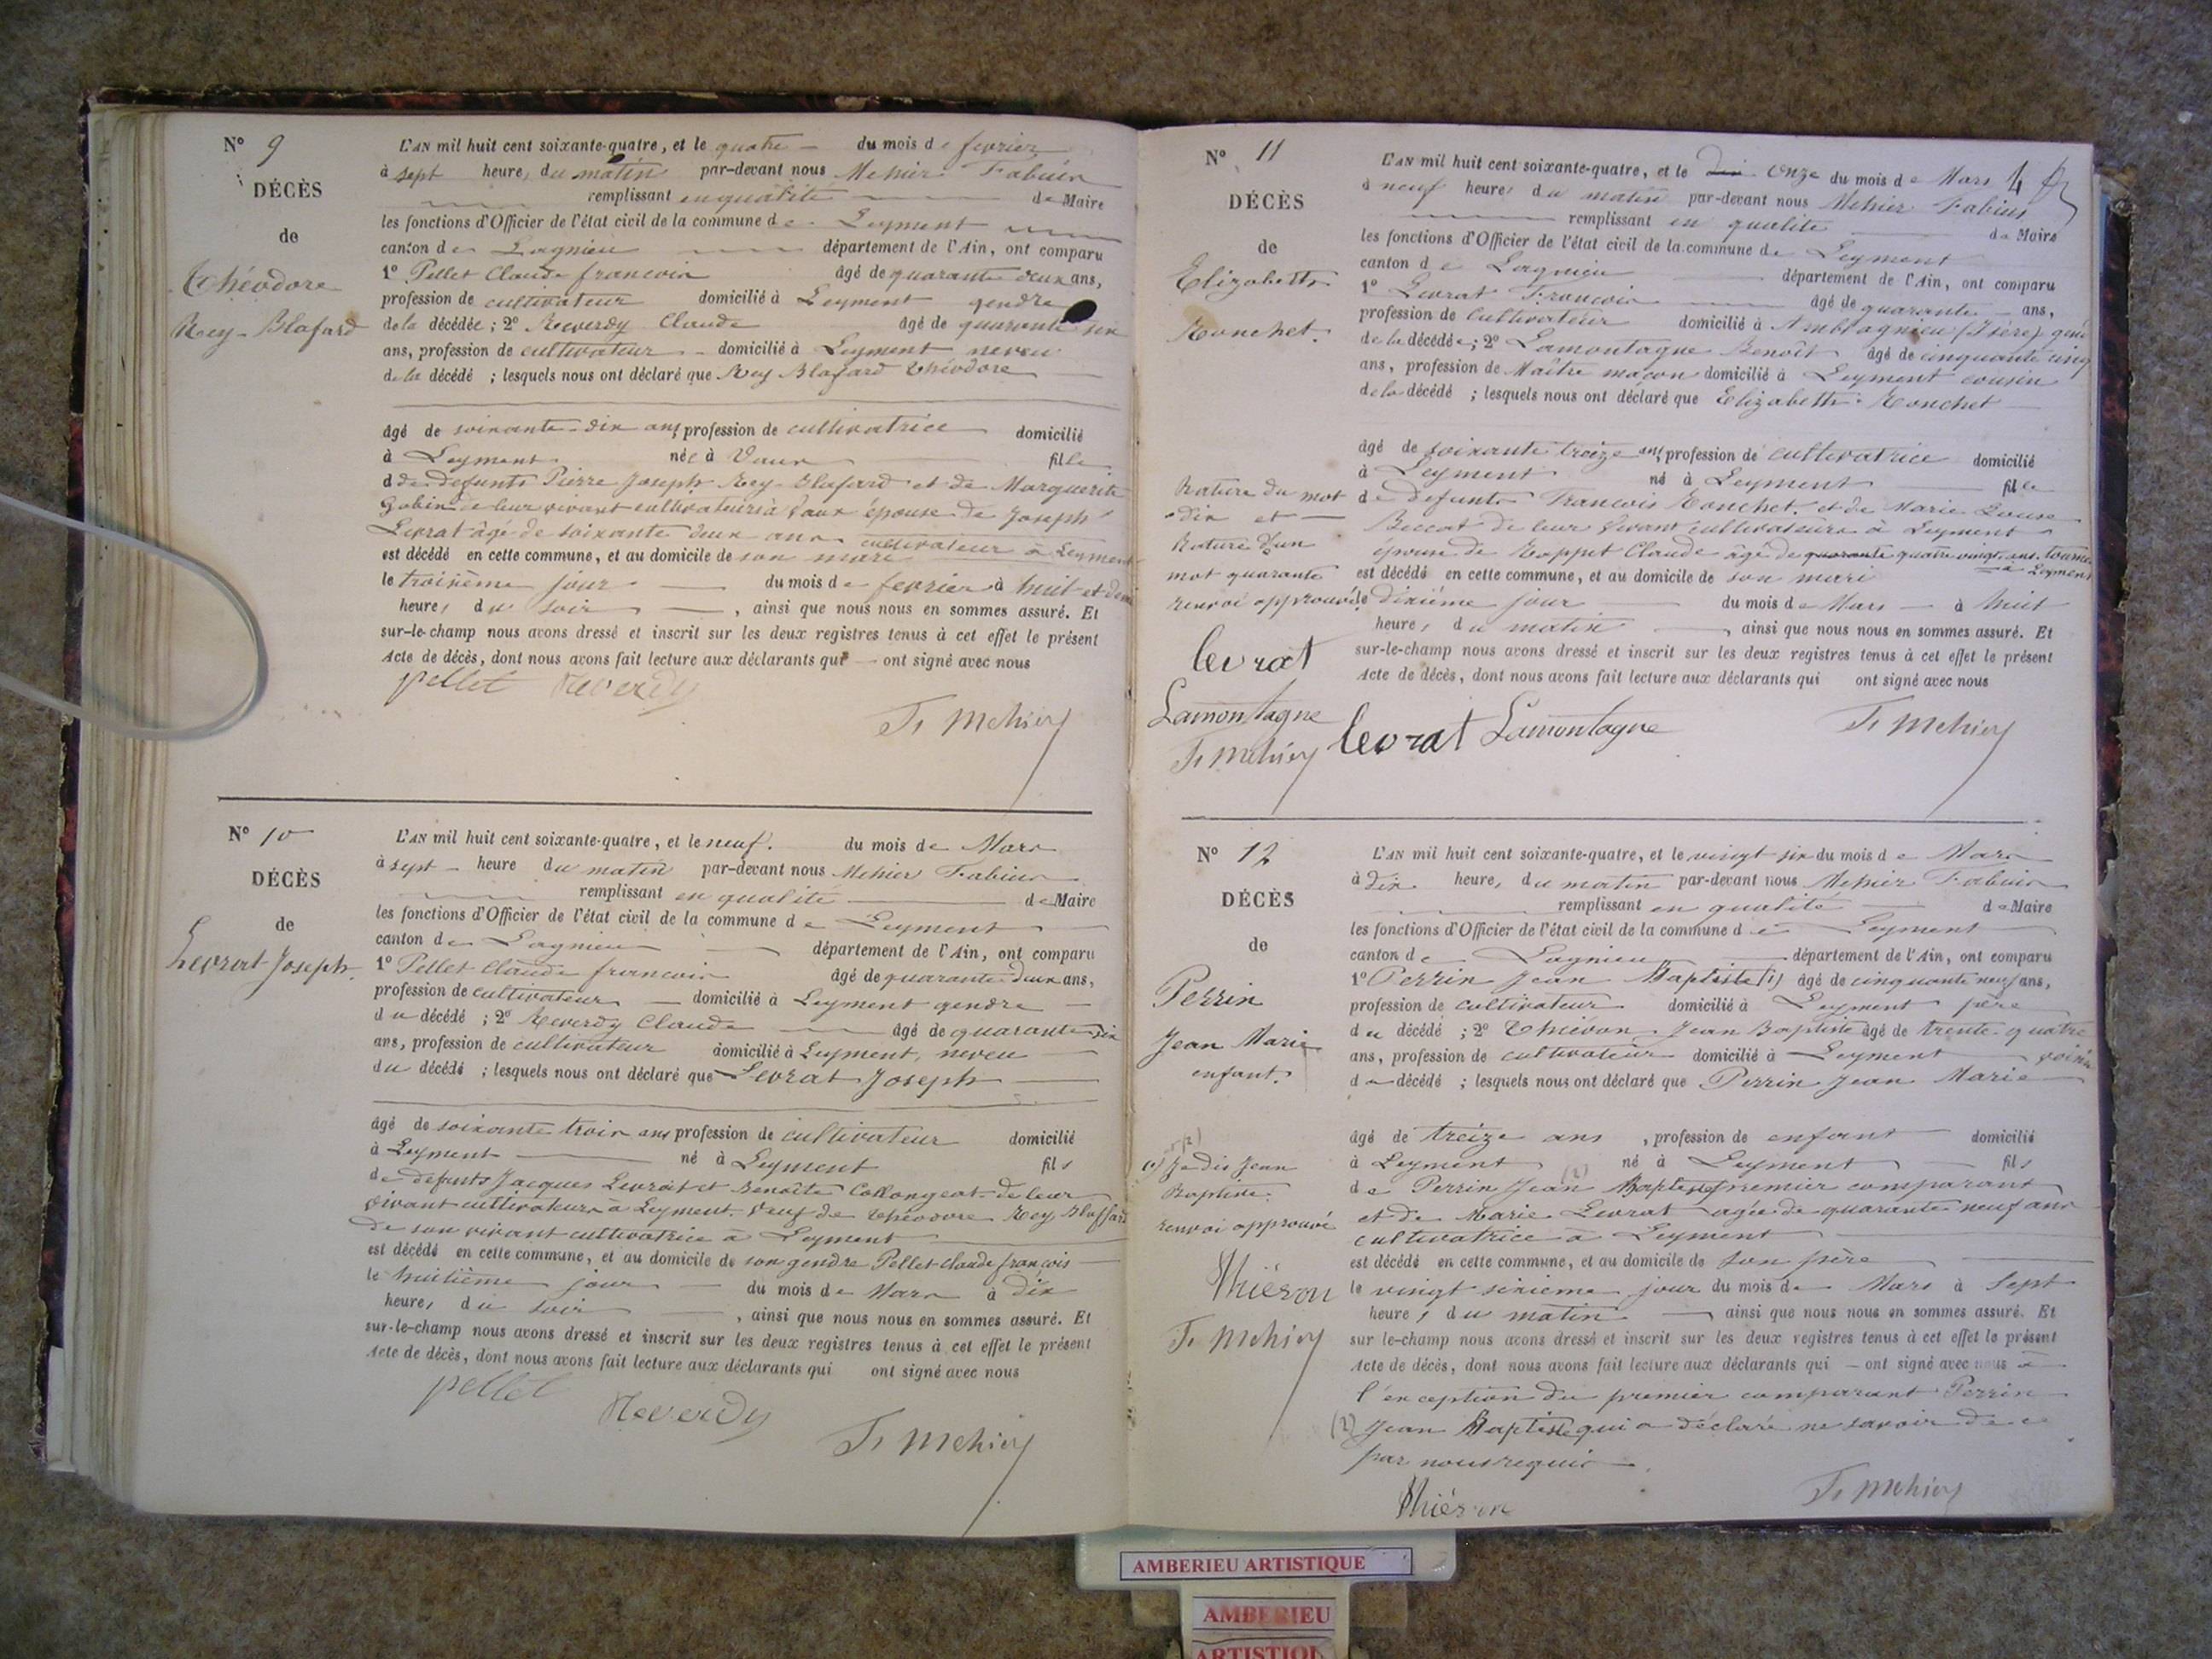 N° 9
DÉCÈS
de
Théodore
Rey-Blafard
L'AN mil huit cent soixante-quatre, et le quatre du mois de fevrier
à sept heures du matin par-devant nous Mehier Fabien
remplissant en qualité de Maire
les fonctions d'Officier de l'état civil de la commune de Leyment
canton de Lagnieu département de l'Ain, ont comparu
1° Pellet Claude francois âgé de quarante deux ans,
profession de cultivateur domicilié à Leyment gendre
de la décédée; 2° Reverdy Claude âgé de quarante six
ans, profession de cultivateur domicilié à Leyment neveu
de la décédé ; lesquels nous ont déclaré que Rey Blafard théodore
âgé de soixante-dix ans, profession de cultivatrice domicilié
à Leyment née à Vaux fille
d de defunts Pierre Joseph Rey-Blafard et de Marguerite
Gobin de leur vivant cultivateurs à Vaux épouse de Joseph
Levrat âgé de soixante deux ans cultivateur à Leyment
est décédé en cette commune, et au domicile de son mari
le troisième jour du mois de fevrier à huit et demi
heures du soir , ainsi que nous nous en sommes assuré. Et
sur-le-champ nous avons dressé et inscrit sur les deux registres tenus à cet effet le présent
Acte de décès, dont nous avons fait lecture aux déclarants qui ont signé avec nous
pellet Reverdy
Fs Mehier
N° 10
DÉCÈS
de
Levrat Joseph.
L'AN mil huit cent soixante-quatre, et le neuf. du mois de Mars
à sept heure du matin par-devant nous Mehier Fabien
remplissant en qualité de Maire
les fonctions d'Officier de l'état civil de la commune de Leyment
canton de Lagnieu département de l'Ain, ont comparu
1° Pellet Claude francois âgé de quarante deux ans,
profession de cultivateur domicilié à Leyment gendre
du décédé ; 2° Reverdy Claude âgé de quarante six
ans, profession de cultivateur domicilié à Leyment, neveu
du décédé ; lesquels nous ont déclaré que Levrat Joseph
âgé de soixante trois ans profession de cultivateur domicilié
à Leyment né à Leyment fils
de defunts Jacques Levrat et Benoîte Collongeat de leur
vivant cultivateurs à Leyment. Veuf de théodore Rey Blaffard
de son vivant cultivatrice à Leyment
est décédé en cette commune, et au domicile de son gendre Pellet claude françois
le huitième jour du mois de Mars à dix
heures du soir , ainsi que nous nous en sommes assuré. Et
sur-le-champ nous avons dressé et inscrit sur les deux registres tenus à cet effet le présent
Acte de décès, dont nous avons fait lecture aux déclarants qui ont signé avec nous
pellet
Reverdy
Fs Mehier
N° 11
DÉCÈS
de
Elizabeth
Ronchet.
L'AN mil huit cent soixante-quatre, et le Dix onze du mois de Mars 4
à neuf heures du matin par-devant nous Mehier Fabien
remplissant en qualité de Maire
les fonctions d'Officier de l'état civil de la commune de Leyment
canton de Lagnieu département de l'Ain, ont comparu
1° Levrat Francois âgé de quarante ans,
profession de Cultivateur domicilié à Amblagnieu (Isère)
de la décédée; 2° Lamontagne Benoît âgé de cinquante cinq
ans, profession de Maître maçon domicilié à Leyment cousin
de la décédé ; lesquels nous ont déclaré que Elizabeth Ronchet
âgé de soixante treize ans, profession de cultivatrice domicilié
à Leyment né à Leyment fille
de defunts Francois Ronchet et de Marie Louise
Beccat de leur Vivant cultivateurs à Leyment
épouse de Rappet Claude âgé de quarante quatre vingt ans.
à Leyment
est décédé en cette commune, et au domicile de son mari
le dixième jour du mois de Mars à huit
heures du matin , ainsi que nous nous en sommes assuré. Et
sur-le-champ nous avons dressé et inscrit sur les deux registres tenus à cet effet le présent
Acte de décès, dont nous avons fait lecture aux déclarants qui ont signé avec nous
Rature du mot
dix et
Rature d'un
mot quarante
renvoi approuvé
levrat
Lamontagne
Fs Mehier
levrat Lamontagne
Fs Mehier
N° 12
DÉCÈS
de
Perrin
Jean Marie
enfant.
L'AN mil huit cent soixante-quatre, et le vingt six du mois de Mars
à dix heures du matin par-devant nous Mehier Fabien
remplissant en qualité de Maire
les fonctions d'Officier de l'état civil de la commune de Leyment
canton de Lagnieu département de l'Ain, ont comparu
1° Perrin Jean Baptiste (1) âgé de cinquante neuf ans,
profession de cultivateur domicilié à Leyment père
du décédé ; 2° Thiévon Jean Baptiste âgé de trente-quatre
ans, profession de cultivateur domicilié à Leyment voisin
du décédé ; lesquels nous ont déclaré que Perrin Jean Marie
âgé de treize ans , profession de enfant domicilié
à Leyment né à Leyment fils
de Perrin Jean (2) Baptiste premier comparant
et de Marie Levrat agée de quarante neuf ans
cultivatrice à Leyment
est décédé en cette commune, et au domicile de son père
le vingt sixième jour du mois de Mars à sept
heures du matin ainsi que nous nous en sommes assuré. Et
sur le-champ nous avons dressé et inscrit sur les deux registres tenus à cet effet le présent
Acte de décès, dont nous avons fait lecture aux déclarants qui ont signé avec nous à
l'exception du premier comparant Perrin
(2) Jean Baptiste qui a déclaré ne savoir de ce
par nous requis
(1) Je dis Jean
Baptiste.
renvoi approuvé
thiévon
Fs Mehier
thiévon
Fs Mehier
AMBERIEU ARTISTIQUE
AMBERIEU
ARTISTIQU